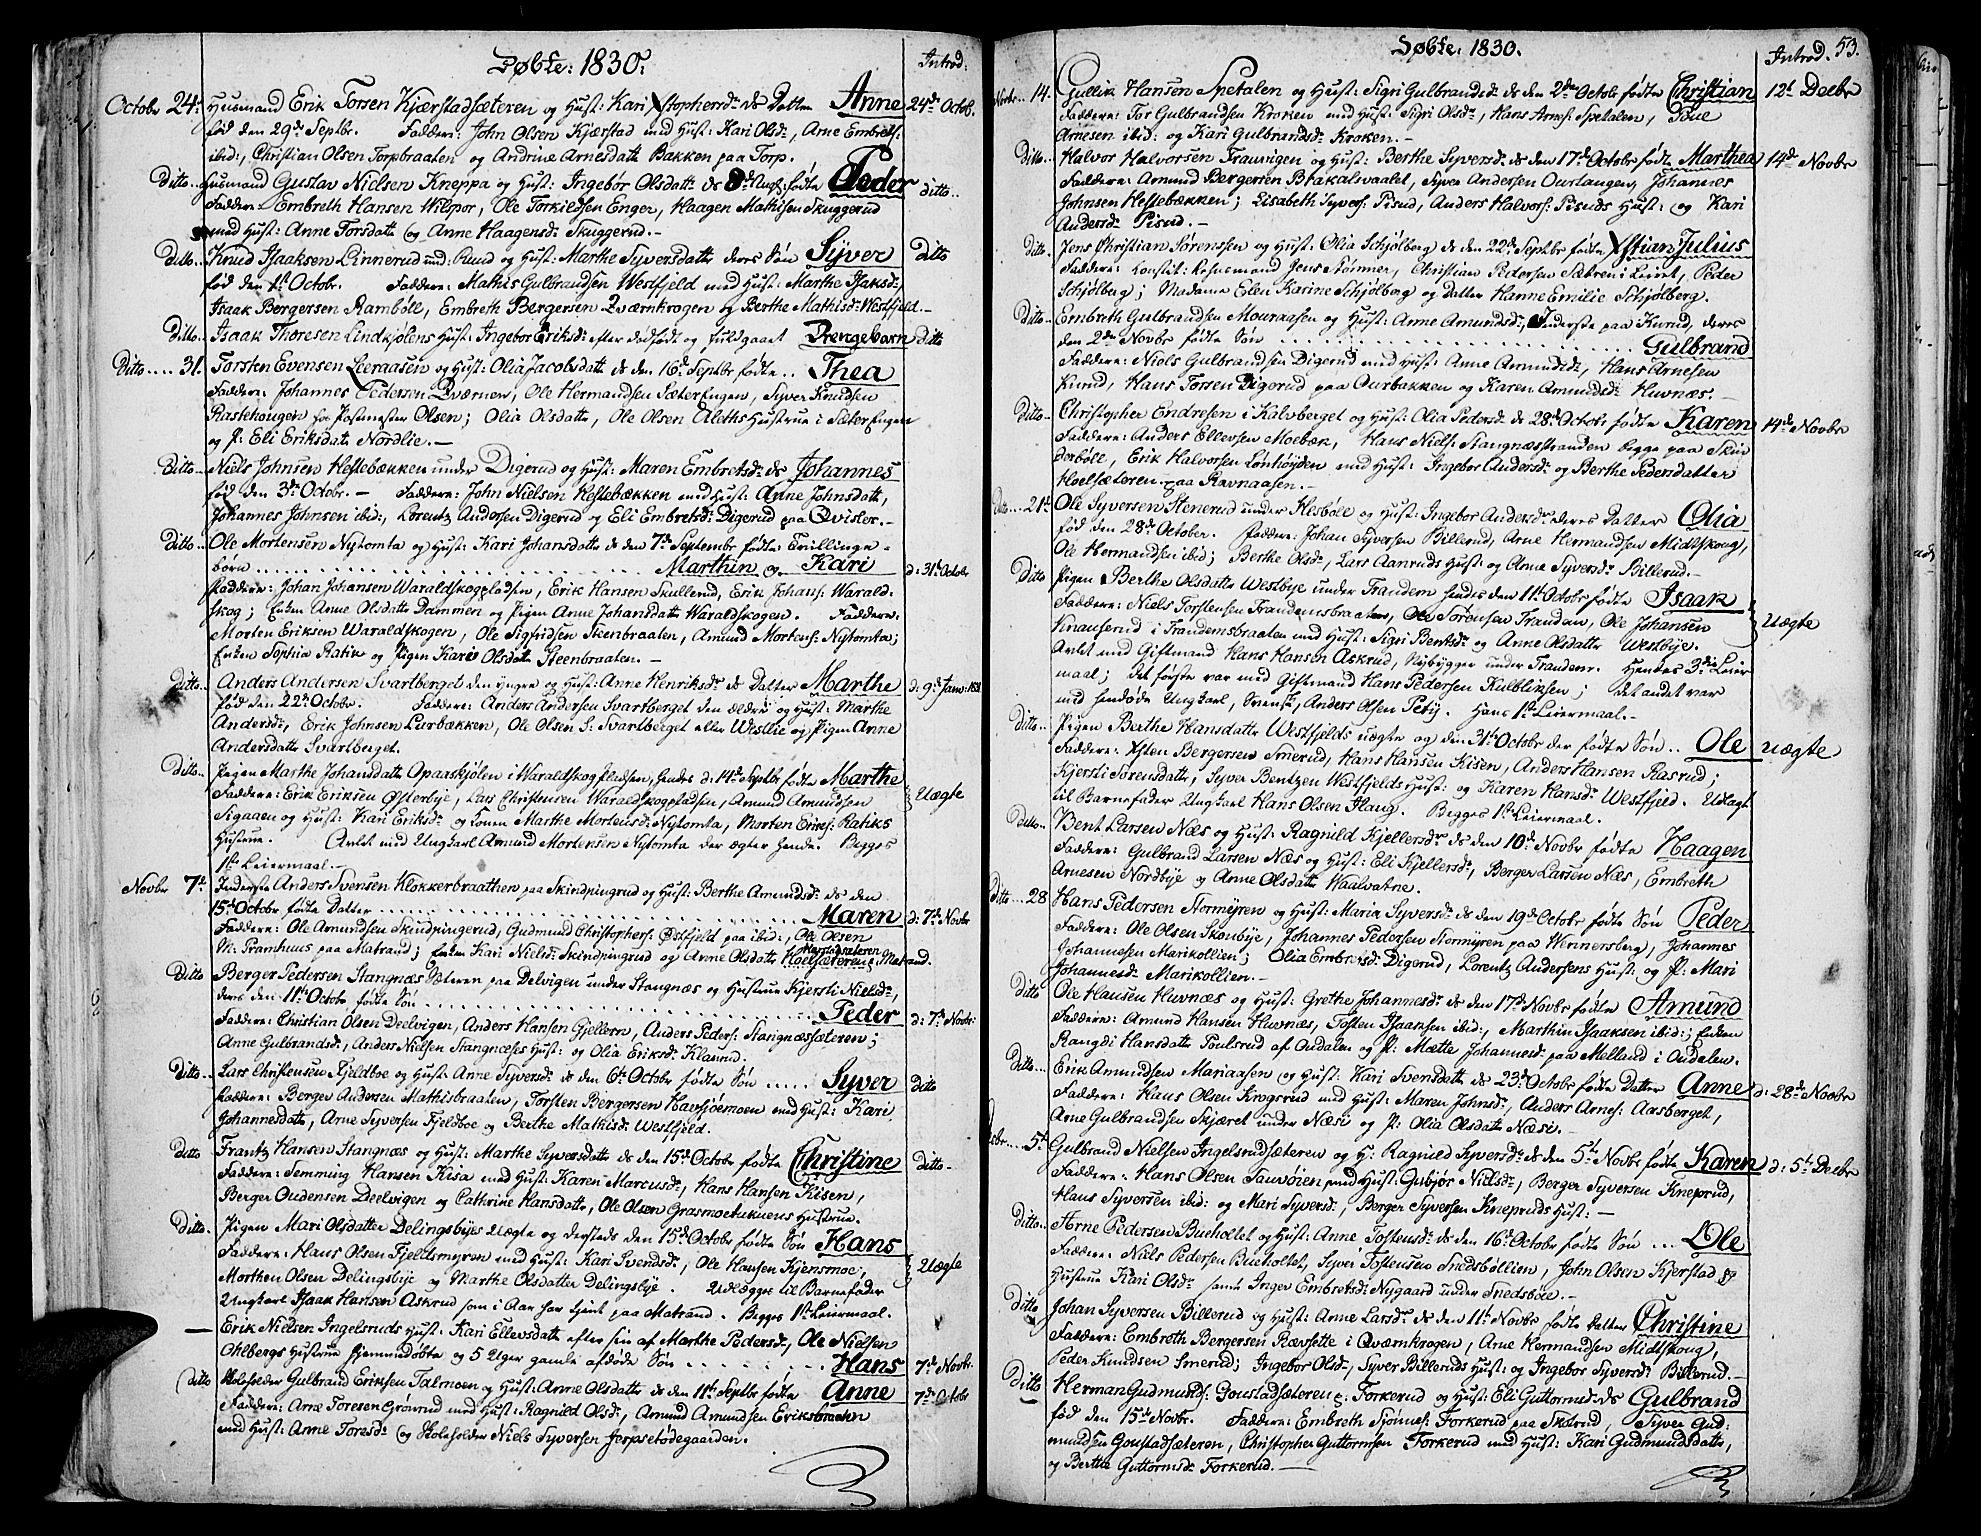 Døbte: 1830.
Introd:
Octobr 24. Husmand Erik Torsen Kjærstadsæteren og Hust: Kari Xstophersdr ds Datter Anne 24de Octob.
fød den 29de Septbr. Faddere: John Olsen Kjærstad med Hust: Kari Olsdr, Arne Embrets:
ibid:, Christian Olsen Torpbraaten og Andrine Arnesdatt Bakken paa Torp.
Ditto.. Husmand Gustav Nielsen Kneppa og Hust: Ingebor Olsdatt ds 8de Augs: fødte Peder ditto..
Faddere: Embreth Hansen Wilpor, Ole Torkildsen Enger, Haagen Mathisen Skuggerud
med Hust: Anne Torsdatt og Anne Haagensdr Skuggerud.
Ditto.. Knud Isaaksen Linnerud und: Ruud og Hust: Marthe Syversdatt deres Søn Syver Ditto
fød den 1st Octobr. Faddere: Mathis Gulbrandsen Westfjeld med Hust: Marthe Isaksdr,
Isaak Bergersen Ramböll, Embreth Bergersen Qværnkrogen og Berthe Mathisdr Westfjeld.
Ditto.. Isaak Thoresen Lindkjølens Hust: Ingebor Eriksdr efter dødfødt og fuldgaaet Drengebarn Ditto
Ditto.... 31. Torsten Evensen Leeraasen og Hust: Olia Jacobsdatt ds den 16de Septbr fødte.. Thea
Faddere: Johannes Pedersen Qværnen, Ole Hermandsen Sæter Engen, Syver Knudsen
Rastehougen for Postmesten Olsen; Olia Olsdatt, Ole Olsen Aleths Hustrue i Sæter Engen
og P: Eli Eriksdatt Nordlie.
Ditto.. Niels Johnsen Hestebækken under Digerud og Hust: Maren Embretsdr ds Johannes
fød den 3de Octobr. Faddere: John Nielsen Hestebækken med Hust: Anne Johnsdatt,
Johannes Johnsen ibid:, Lorentz Andersen Digerud og Eli Embretsdr Digerud paa Qvisler.
Ditto.. Ole Mortensen Nytomta og Hust: Kari Johansdatt ds den 7de Septembr fødte: Tvillinge-
børn .... Marthin og Kari d: 31te Octobr
Faddere: Johan Johansen Waraldskogpladsen, Erik Hansen Skullerud, Erik Johans: Warald-
skog; Enken Anne Olsdatt Dammen og Pigen Anne Johansdatt Waraldskogen. Faddere:
Morten Eriksen Waraldskogen, Ole Sigfridsen Steenbraaten, Amund Mortens: Nytomta;
Enken Sophia Ratik og Pigen Kari Olsdatt Steenbraaten.
Ditto.. Anders Andersen Svartberget den yngre og Hust: Anne Henriksdr ds Datter Marthe d: 9de Janv: 1831
fød den 22de Octobr. Faddere: Anders Andersen Svartberget den ældre og Hust: Marthe
Andersdr, Erik Johnsen Lurbakken, Ole Olsen S: Svartberget eller Westlie og Pigen Anne
Andersdatt Svartberget.
Ditto.. Pigen Marthe Johansdatt Opaaskjölen i Waraldskogpladsen, hendes d: 14de Septbr fødte Marthe
Faddere: Erik Eriksen Østerbye, Lars Christensen Waraldskogpladsen, Amund Amundsen Uægte
Sigaaen og Hust: Kari Eriksdr og Konen Marthe Mortensdr Nytomta, Morten Eriks: Ratiks
Hustrue. Avlet med Ungkarl Amund Mortensen Nytomta der ægter hende. Begges
1ste Leiermaal.
Novbr 7de Inderste Anders Svensen Klokkerbraathen paa Skindpingrud og Hust: Berthe Amundsdr ds den
15de Octobr fødte Datter .... Maren d: 7de Novbr
Faddere: Ole Amundsen Skindpingerud, Gudmund Christophers: Østfjeld paa ibid:, Ole Olsen
M: Pramhuus paa Matrand; Enken Kari Nielsdr Skindpingrud og Anne Olsdatt Hoelsæteren, Matrand.
Ditto Berger Pedersen Stangnæs Sæteren paa Delvigen under Stangnæs og Hustrue Kjersti Nielsdr,
deres den 11te Octobr fødte Søn .... Peder d: 7de Novbr:
Faddere: Christian Olsen Deelvigen, Anders Hansen Gjellern, Anders Peders: Stangnæssæteren;
Anne Gulbrandsdr, Anders Nielsen Stangnæses Hust: og Olia Eriksdr Klanna.
Ditto.. Lars Christensen Fjeldboe og Hust: Anne Syversdr ds den 6te Octobr fødte Søn ..... Syver Ditto
Faddere: Berger Andersen Mathisbraaten, Torsten Bergersen Havsjøemoen med Hust: Kari
Johannesdatt, Arne Syversen Fjeldboe og Berthe Mathisdr Westfjeld.
Ditto Frantz Hansen Stangnæs og Hust: Marthe Syversdatt ds den 15de Octobr fødte Christine Ditto
Faddere: Femming Hansen Kisa med Hust: Karen Marcusdr, Hans Hansen Kisen,
Berger Oudensen Deelvigen og Cathrine Hansdatt, Ole Olsen Grasmoetukuens Hustrue.
Ditto. Pigen Mari Olsdatter Delingsbyes Uægte og dersteds den 15de Octobr fødte Søn Hans
Faddere: Hans Olsen Fjeldsmyren med Hust: Kari Svendsdr, Ole Hansen Kjensmoe, Uægte
Morthen Olsen Delingsbye og Marthe Olsdatter Delingsbye. Udlægges til Barnefader
Ungkarl Isaak Hansen Askrud som i Aar har tjent paa Matrand. Begges 1ste Leiermaal.
Erik Nielsen Ingelsruds Hust: Kari Ellevsdatt efter sin af Marthe Pedersdr, Ole Nielsen
Ahlbergs Hustrue hjemmedøbte og 5 Uger gamle afdøde Søn .... Hans 7de Novbr.
Ditto Skoleholder Gulbrand Eriksen Talmoen og Hust: Anne Olsdatt ds den 11te Septbr fødte Anne 7de Octobr
Faddere: Arne Toresen Grövrud med Hust: Ragnild Olsdr, Amund Amundsen Eriksbraaten
med Hust: Anne Toresdr og Skoleholder Niels Syversen Jerpsetödegaarden.
Døbte: 1830.
Introd. 53.
Novbr.. 14. Gullik Hansen Spetalen og Hust: Sigri Gulbrandsdr ds den 2den Octobr fødte Christian 12te Decbr
Faddere: Tor Gulbrandsen Kroken med Hust: Sigri Olsdr, Hans Arnes: Spetalen, Tove
Arnesen ibid: og Kari Gulbrandsdr Kroken.
Ditto.. Halvor Halvorsen Frauvigen og Hust: Berthe Syversdr ds den 17de Octobr fødte Marthea 14de Novbr
Faddere: Amund Bergersen Brakalsvaalet, Syver Andersen Ourtangen, Johannes
Johnsen Hestebækken; Lisabeth Syvers: Pisud, Anders Halvors: Pisuds Hust: og Kari
Andersdr Pisud.
Ditto. Jens Christian Sørenssen og Hust: Olia Schjølberg ds den 22de Septbr fødte Xstian Julius
Faddere: Konstit: Lehnsmand Jens Stömmer, Christian Pedersen Sæbren: Leiret, Peder
Schjølberg; Madame Elen Karine Schjølberg og Datter Hanne Emilie Schjølberg.
Ditto.. Embreth Gulbrandsen Mouraasen og Hust: Anne Amundsdr, Inderste paa Kurud, deres
den 2den Novbr fødte Søn .... Gulbrand
Faddere: Niels Gulbrandsen Digerud med Hust: Anne Amundsdr, Hans Arnesen
Kurud, Hans Torsen Digerud paa Ourbakken og Karen Amundsdr Huvnæs.
Ditto.. Christopher Endresen i Kalvberget og Hust: Olia Pedersdr ds 28de Octobr fødte Karen 14de Novbr
Faddere: Anders Ellevsen Moebæk, Hans Niels: Stangnæsstranden begge paa Skin
derbøle, Erik Halvorsen Lønhöyden med Hust: Ingebor Andersdr og Berthe Pedersdatter
Hoelsæteren paa Ravnaasen.
Ditto... 21de Ole Syversen Stenerud under Hesbøle og Hust: Ingebor Andersdr deres Datter Olia
fød den 28de October. Faddere: Johan Syversen Billerud, Arne Hermandsen Midtskoug,
Ole Hermandsen ibid; Berthe Olsdr, Lars Aanruds Hust: og Anne Syversdr Billerud.
Ditto Pigen Berthe Olsdatt Westbye under Frauden hendes den 11te Octobr fødte Isaak
Faddere: Niels Torstensen Fraudensbraaten, Ole Sörensen Frauden, Ole Johansen Uægte
Knauserud i Fraudensbraaten med Hust: Sigri Bentsdr og Anne Olsdatt Westbye.
Avlet med Giftmand Hans Hansen Askrud, Nybygger under Frauden. Hendes 3die Leier
maal; det første var med Giftmand Hans Pedersen Kulbliksen; det andet var
med hensøde Ungkarl, Svensk, Anders Olsen Peby. Hans 1ste Leiermaal.
Ditto.. Pigen Berthe Hansdatt Westfjelds uægte og den 31te Octobr der fødte Søn .. Ole uægte
Faddere: Aften Bergersen Smerud, Hans Hansen Kisen, Anders Hansen Rasrud;
Kjersti Sörensdatt, Syver Bentzen Westfjelds Hust: og Karen Hansdr Westfjeld. Udlagt
til Barnefader Ungkarl Hans Olsen Haug. Begges 1ste Leiermaal.
Ditto.. Bent Larsen Næs og Hust: Ragnild Kjellersdr ds den 10de Novbr fødte Haagen
Faddere: Gulbrand Larsen Næs og Hust: Eli Kjellersdr, Berger Larsen Næs, Embreth
Arnesen Nordbye og Anne Olsdatt Waalvatne.
Ditto... 28 Hans Pedersen Stormyren og Hust: Maria Syversdr ds den 19de Octobr fødte Søn Peder
Faddere: Ole Olsen Skoubye, Johannes Pedersen Stormyren paa Hennersberg, Johannes
Johannesen Marikollien; Olia Embretsdr Digerud, Lorentz Andersens Hust: og P: Mari
Johannesdr Marikollien.
Ditto Ole Hansen Huvnæs og Hust: Grethe Johannesdr ds den 17de Novbr fødte Amund
Faddere: Amund Hansen Huvnæs, Tosten Isaaksen ibid:, Marthin Isaaksen ibid:; Enken
Rangdi Hansdatt Poulsrud af Oudalen og P: Mætte Johannesdr paa Melland i Oudalen.
Ditto... Erik Amundsen Mariaasen og Hust: Kari Svensdatt ds 23de Octobr fødte Datter Anne d: 28de Novbr
Faddere: Hans Olsen Krogsrud med Hust: Maren Johnsdr, Anders Arnes: Aasberget,
Arne Gulbrandsen Skjæret under Næsi og P: Olia Olsdatt Næsi.
Decbr.... 5te Gulbrand Nielsen Ingelsrudsæteren og H: Ragnild Syversdr ds den 5te Novbr fødte Karen d: 5te Decbr
Faddere: Hans Olsen Sauvöien med Hust: Gubjör Nielsdr, Berger Syversen Kneprud,
Hans Syversen ibid: og Mari Syversdr, Berger Syversen Knepruds Hust:
Ditto.. Arne Pedersen Buholtet og Hust: Anne Tostensdr ds den 16de Octobr fødte Søn ... Ole
Faddere: Niels Pedersen Bueholtet, Syver Tostensen Snedsböllien, John Olsen Kjerstad og
Hustrue Kari Olsdr samt Inger Embretsdr Nygaard under Snedsbøle.
Ditto Johan Syversen Billerud og Hust: Anne Larsdr ds den 11te Novbr fødte Datter Christine
Faddere: Embreth Bergersen Rævsette i Qværnkrogen, Arne Hermandsen Midtskoug,
Peder Knudsen Smerud; Ingebor Olsdr, Syver Billeruds Hust: og Ingebor Syversdr Billerud.
Ditto Herman Gudmunds: Goustadsæteren p: Forkerud og Hust: Eli Guttormsdr ds Gulbrand
fød den 15de Novbr. Faddere: Embreth Simens: Forkerud paa Skotrud, Syver Gud-
mundsen Goustadsæteren, Christopher Guttormsen Forkerud med Hust: Kari Gudmundsdatt,
og Berthe Guttormsdr Forkerud.